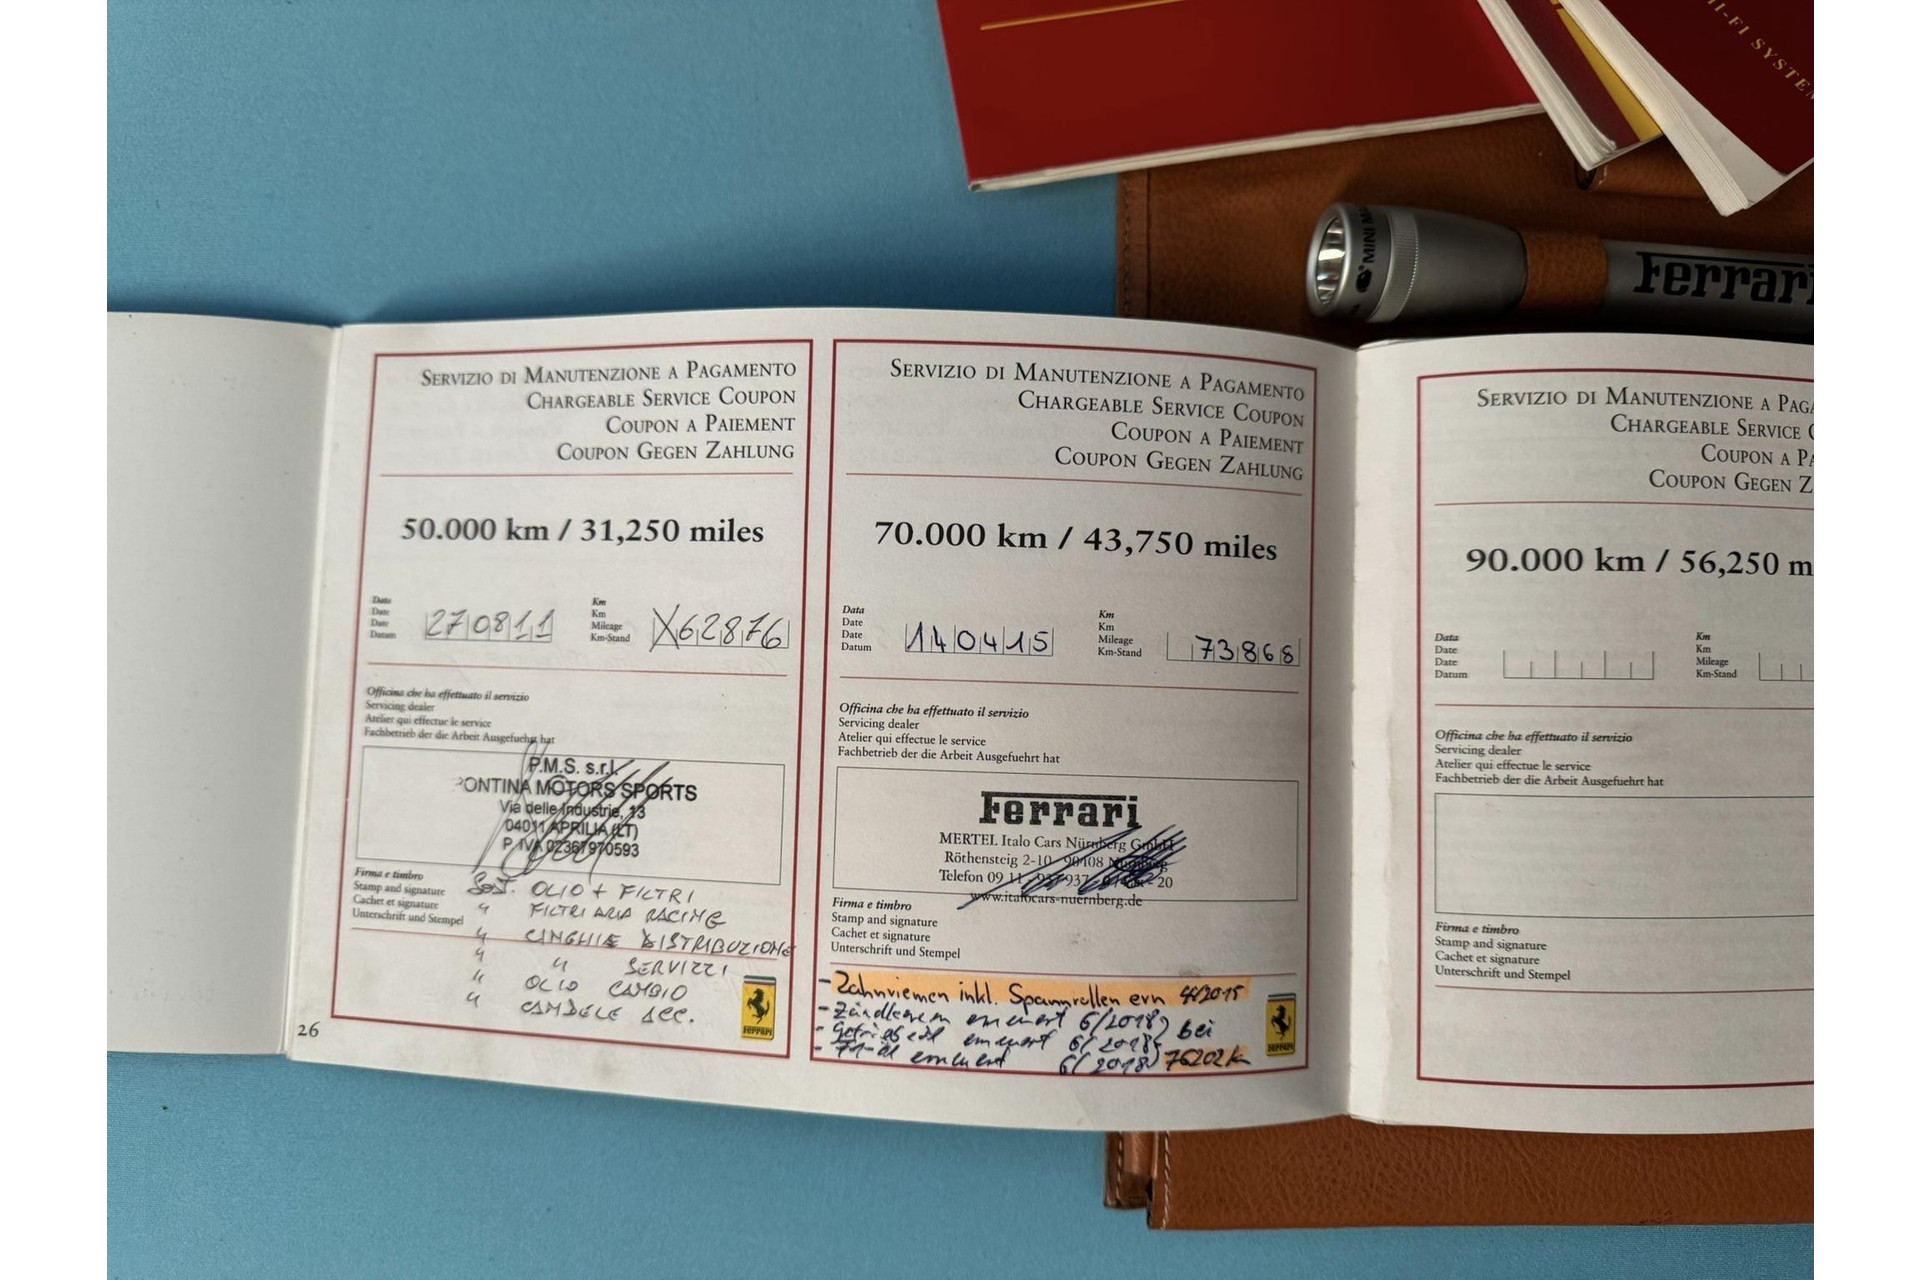 HI-FI SYSTEM
MINI MA
Ferrari
SERVIZIO DI MANUTENZIONE A PAGAMENTO
CHARGEABLE SERVICE COUPON
COUPON A PAIEMENT
COUPON GEGEN ZAHLUNG
50.000 km / 31,250 miles
Data
Date
Date
Datum
270811
Km
Km
Mileage
Km-Stand
X62876
Officina che ha effettuato il servizio
Servicing dealer
Atelier qui effectue le service
Fachbetrieb der die Arbeit Ausgefuehrt hat
P.M.S. s.r.l.
PONTINA MOTORS SPORTS
Via delle Industrie, 13
04011 APRILIA (LT)
P. IVA 02367970593
Firma e timbro
Stamp and signature
Cachet et signature
Unterschrift und Stempel
SOST. OLIO + FILTRI
" FILTRI ARIA RACING
" CINGHIE DISTRIBUZIONE
" " SERVIZZI
" OLIO CAMBIO
" CANDELE ACC.
Ferrari
26
SERVIZIO DI MANUTENZIONE A PAGAMENTO
CHARGEABLE SERVICE COUPON
COUPON A PAIEMENT
COUPON GEGEN ZAHLUNG
70.000 km / 43,750 miles
Data
Date
Date
Datum
140415
Km
Km
Mileage
Km-Stand
73868
Officina che ha effettuato il servizio
Servicing dealer
Atelier qui effectue le service
Fachbetrieb der die Arbeit Ausgefuehrt hat
Ferrari
MERTEL Italo Cars Nürnberg GmbH
Röthensteig 2-10 · 90408 Nürnberg
Telefon 09 11 - 20
www.italocars-nuernberg.de
Firma e timbro
Stamp and signature
Cachet et signature
Unterschrift und Stempel
- Zahnriemen inkl. Spannrollen ern 4/2015
- Zündkerzen erneuert 6/2018 bei
- Getriebeöl erneuert 6/2018
- F1-öl erneuert 6/2018 76202 km
Ferrari
SERVIZIO DI MANUTENZIONE A PAGA
CHARGEABLE SERVICE C
COUPON A PA
COUPON GEGEN Z
90.000 km / 56,250 m
Data
Date
Date
Datum
Km
Km
Mileage
Km-Stand
Officina che ha effettuato il servizio
Servicing dealer
Atelier qui effectue le service
Fachbetrieb der die Arbeit Ausgefuehrt hat
Firma e timbro
Stamp and signature
Cachet et signature
Unterschrift und Stempel